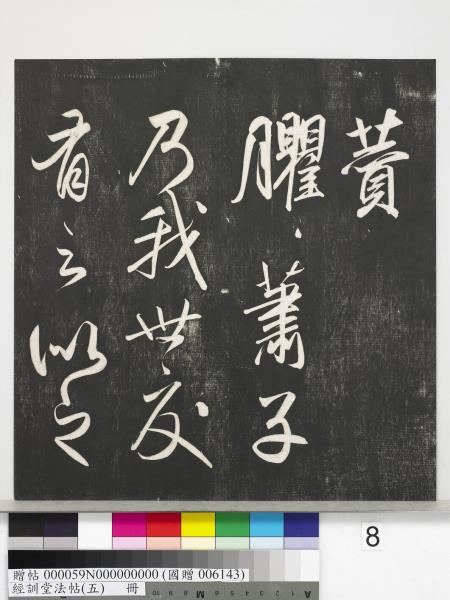 蕡
臞々蕭子
乃我世交
有之似之
8
贈帖 000059N000000000 (國贈 006143)
經訓堂法帖(五) 冊